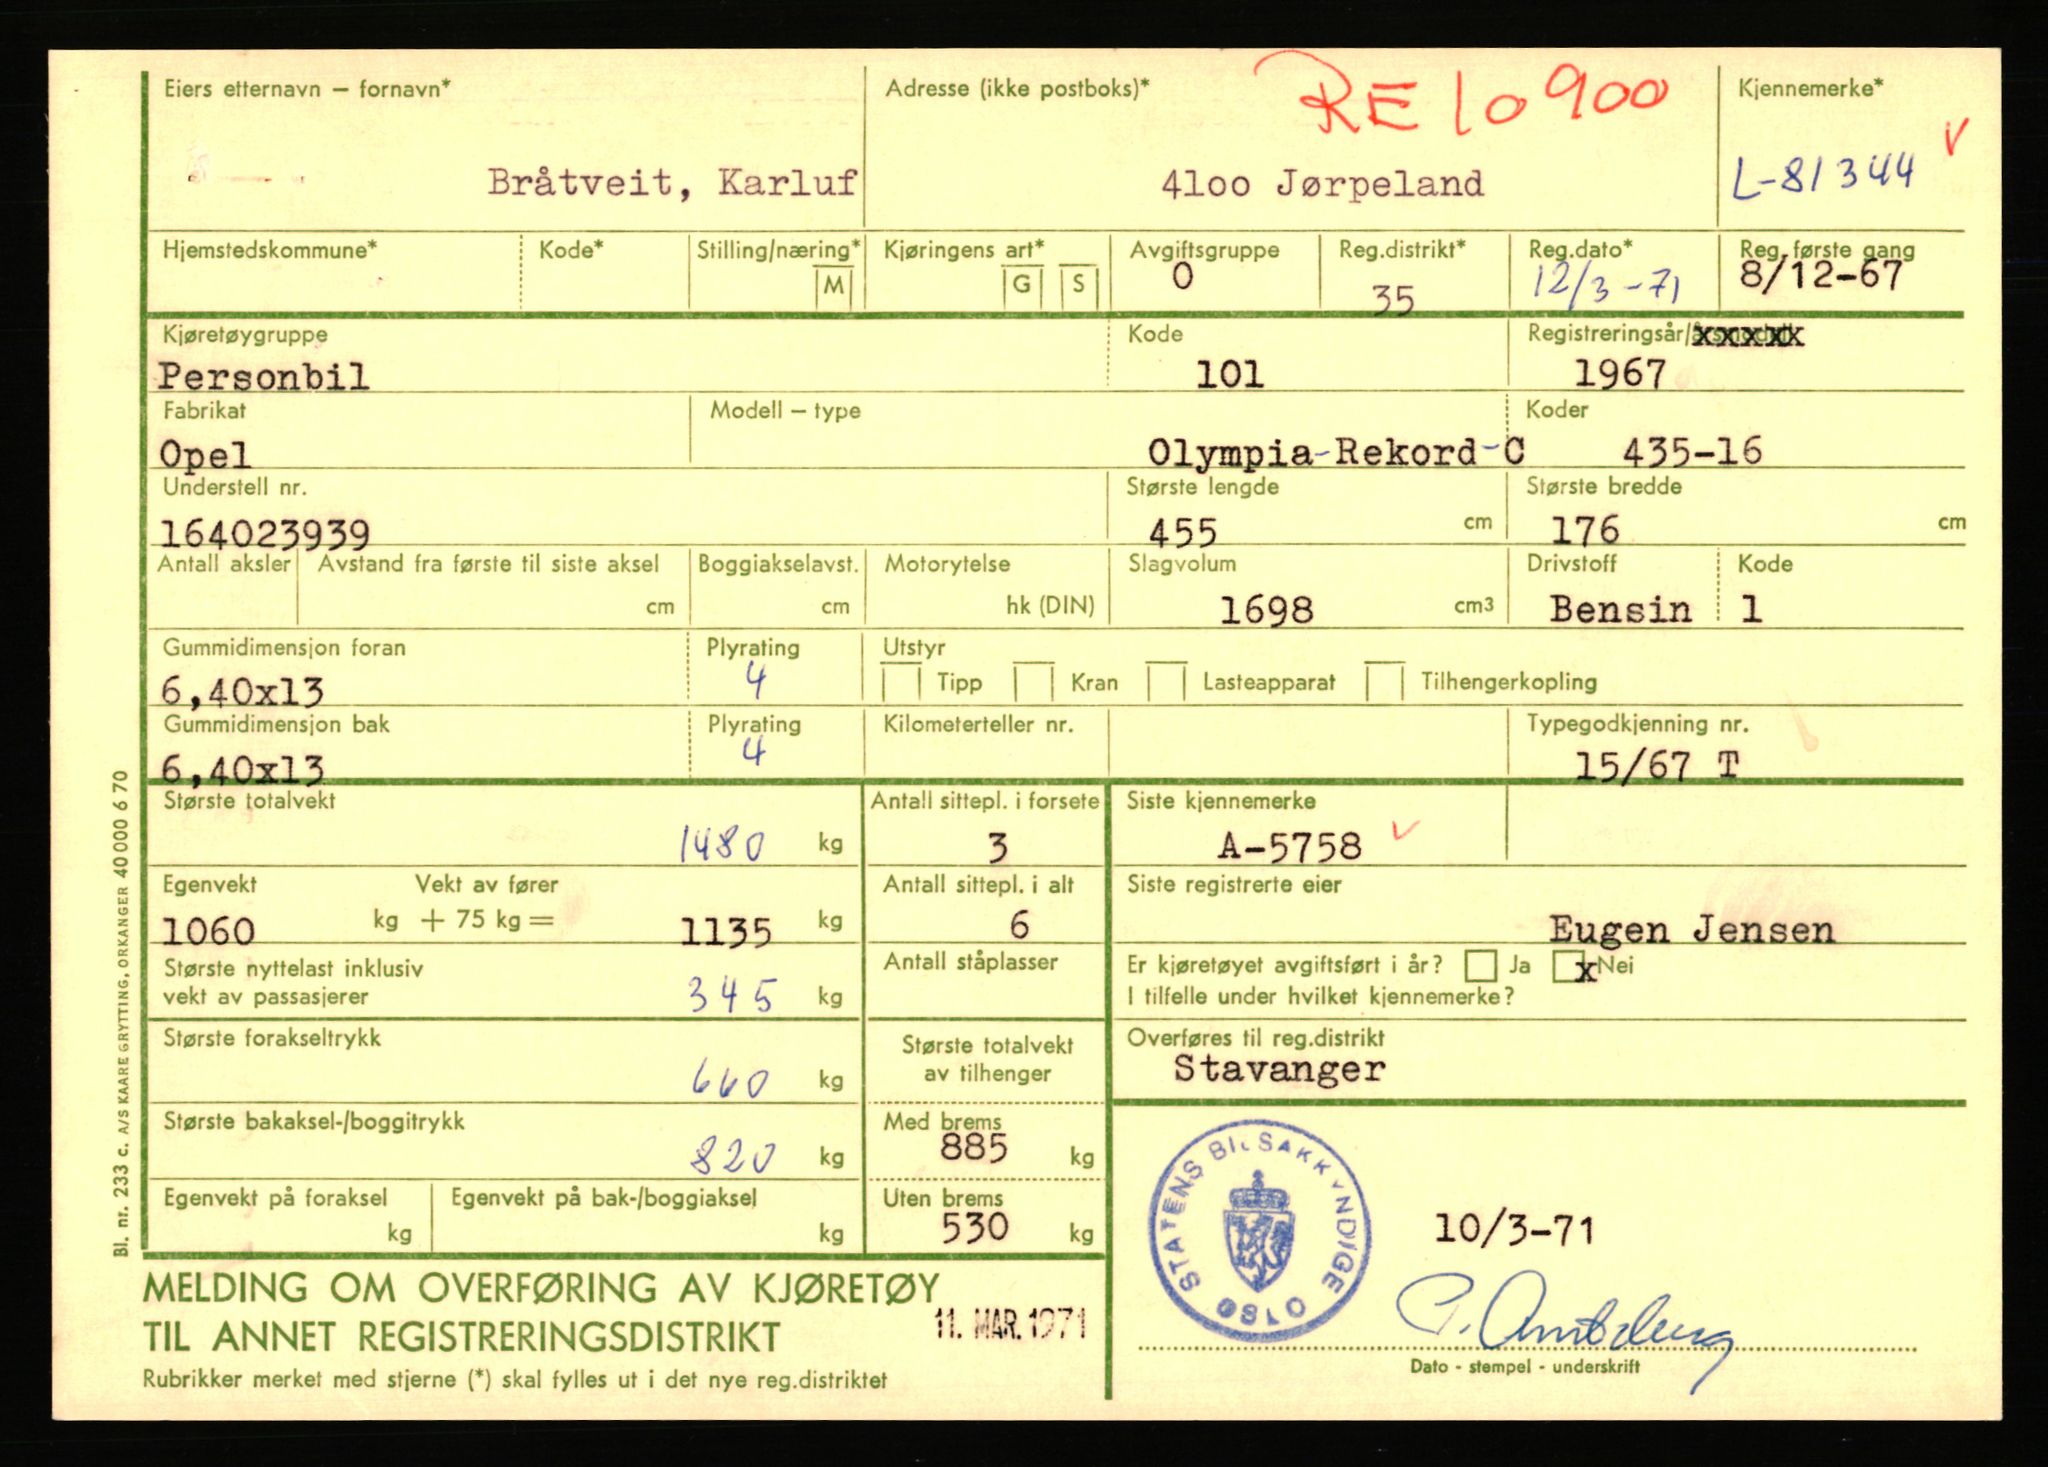 RE 10900
Eiers etternavn – fornavn*
Adresse (ikke postboks)*
Kjennemerke*
Bråtveit, Karluf
4100 Jørpeland
L-81344
Hjemstedskommune*
Kode*
Stilling/næring*
M
Kjøringens art*
G
S
Avgiftsgruppe
0
Reg.distrikt*
35
Reg.dato*
12/3-71
Reg. første gang
8/12-67
Kjøretøygruppe
Personbil
Kode
101
Registreringsår/
1967
Fabrikat
Opel
Modell – type
Olympia-Rekord-C
Koder
435-16
Understell nr.
164023939
Største lengde
455 cm
Største bredde
176 cm
Antall aksler
Avstand fra første til siste aksel
cm
Boggiakselavst.
cm
Motorytelse
hk (DIN)
Slagvolum
1698 cm3
Drivstoff
Bensin
Kode
1
Gummidimensjon foran
6,40x13
Plyrating
4
Utstyr
Tipp
Kran
Lasteapparat
Tilhengerkopling
Gummidimensjon bak
6,40x13
Plyrating
4
Kilometerteller nr.
Typegodkjenning nr.
15/67 T
Største totalvekt
1480 kg
Antall sittepl. i forsete
3
Siste kjennemerke
A-5758
Egenvekt
1060 kg
Vekt av fører
+ 75 kg = 1135 kg
Antall sittepl. i alt
6
Siste registrerte eier
Eugen Jensen
Største nyttelast inklusiv
vekt av passasjerer
345 kg
Antall ståplasser
Er kjøretøyet avgiftsført i år? Ja x Nei
I tilfelle under hvilket kjennemerke?
Største forakseltrykk
660 kg
Største totalvekt
av tilhenger
Overføres til reg.distrikt
Stavanger
Største bakaksel-/boggitrykk
820 kg
Med brems
885 kg
Egenvekt på foraksel
kg
Egenvekt på bak-/boggiaksel
kg
Uten brems
530 kg
STATENS BILSAKKYNDIGE
OSLO
10/3-71
MELDING OM OVERFØRING AV KJØRETØY
TIL ANNET REGISTRERINGSDISTRIKT
11. MAR. 1971
Rubrikker merket med stjerne (*) skal fylles ut i det nye reg.distriktet
Dato - stempel - underskrift
Bl. nr. 233 c. A/S KAARE GRYTTING, ORKANGER 40 000 6 70